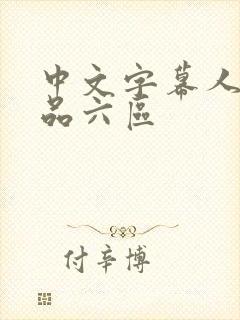 中文字幕人
品六區
付辛博